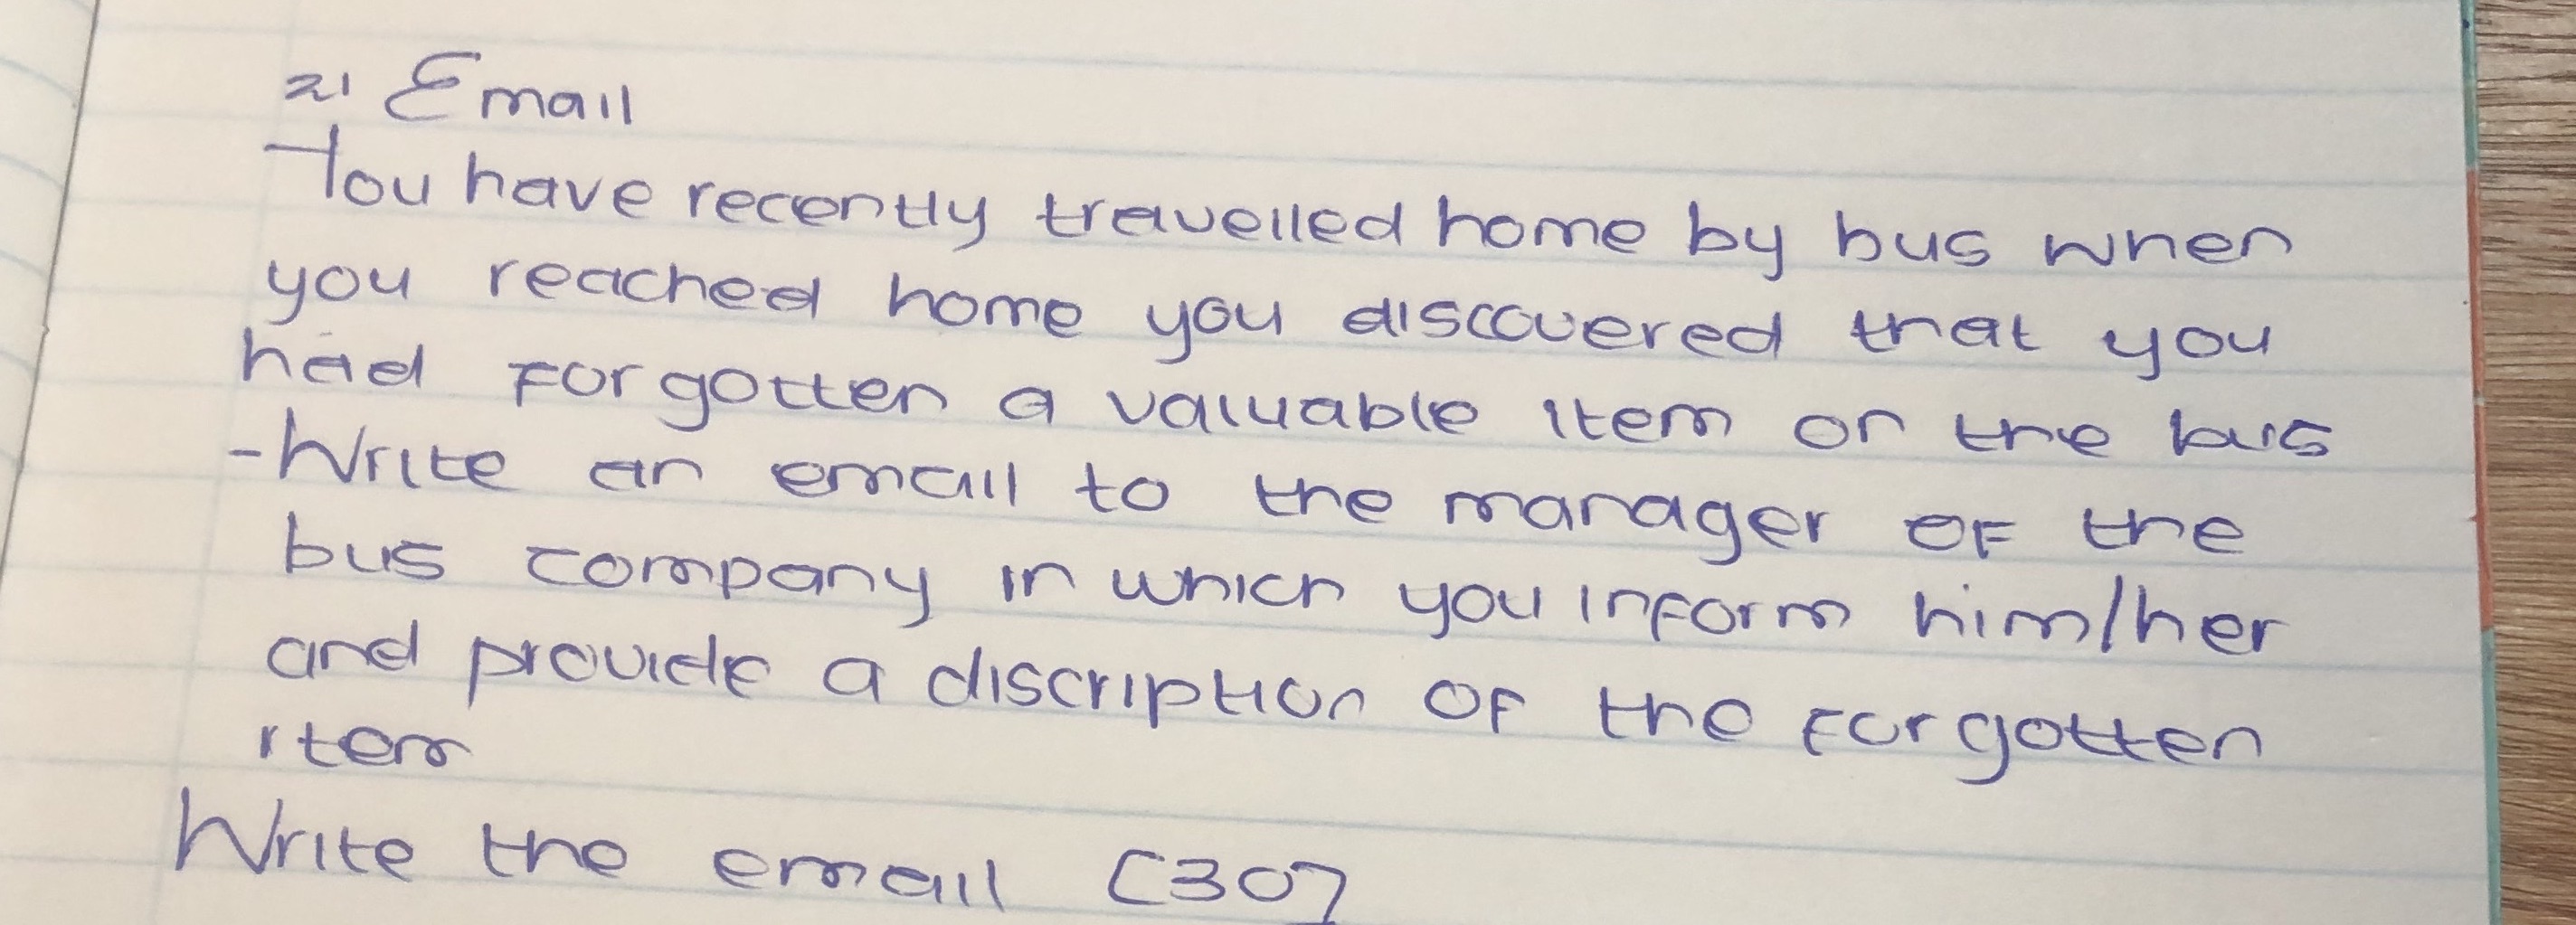 21 Email
You have recently travelled home by bus when
you reached home you discovered that you
had forgotten a valuable item on the bus
-Write an email to the manager of the
bus company in which you inform him/her
and provide a discription of the forgotten
item
Write the email [30]